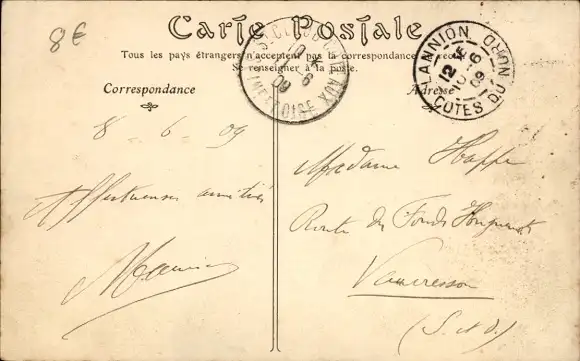 8€
Carte Postale
Tous les pays étrangers n'acceptent pas la correspondance au recto
Se renseigner à la poste.
Correspondance
Adresse
LANNION
12
10-6
09
COTES DU NORD
10
6
09
SEINE ET OISE
8-6-09
Affectueuses amitiés
Madame Happe
Route des Fonds Huguenots
Vaucresson
(S. et O.)